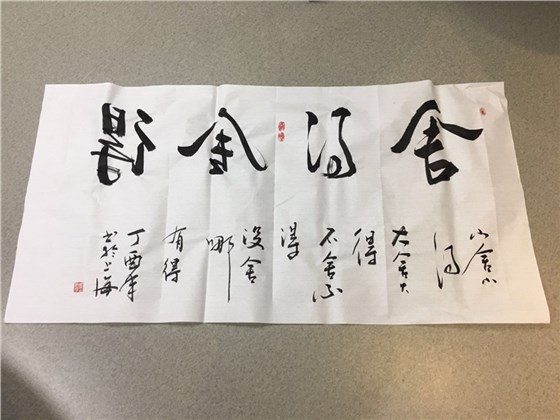 舍得舍得
小舍小
得
大舍大
得
不舍不
得
没舍
哪
有得
丁酉年
书于上海